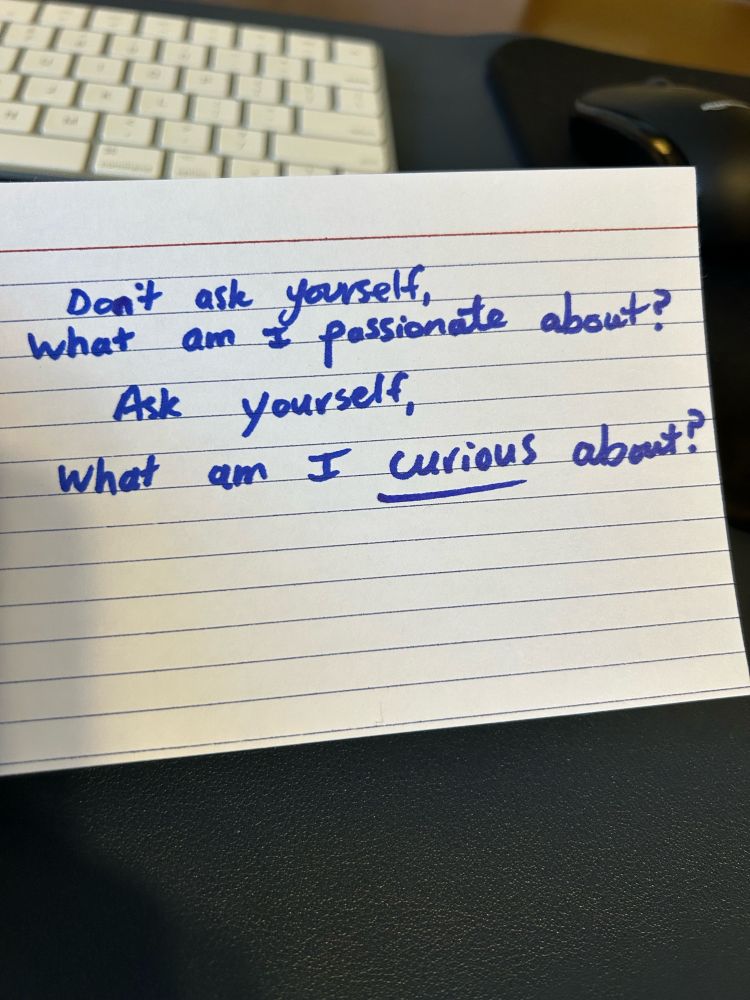 Don't ask yourself,
What am I passionate about?
Ask yourself,
What am I curious about?